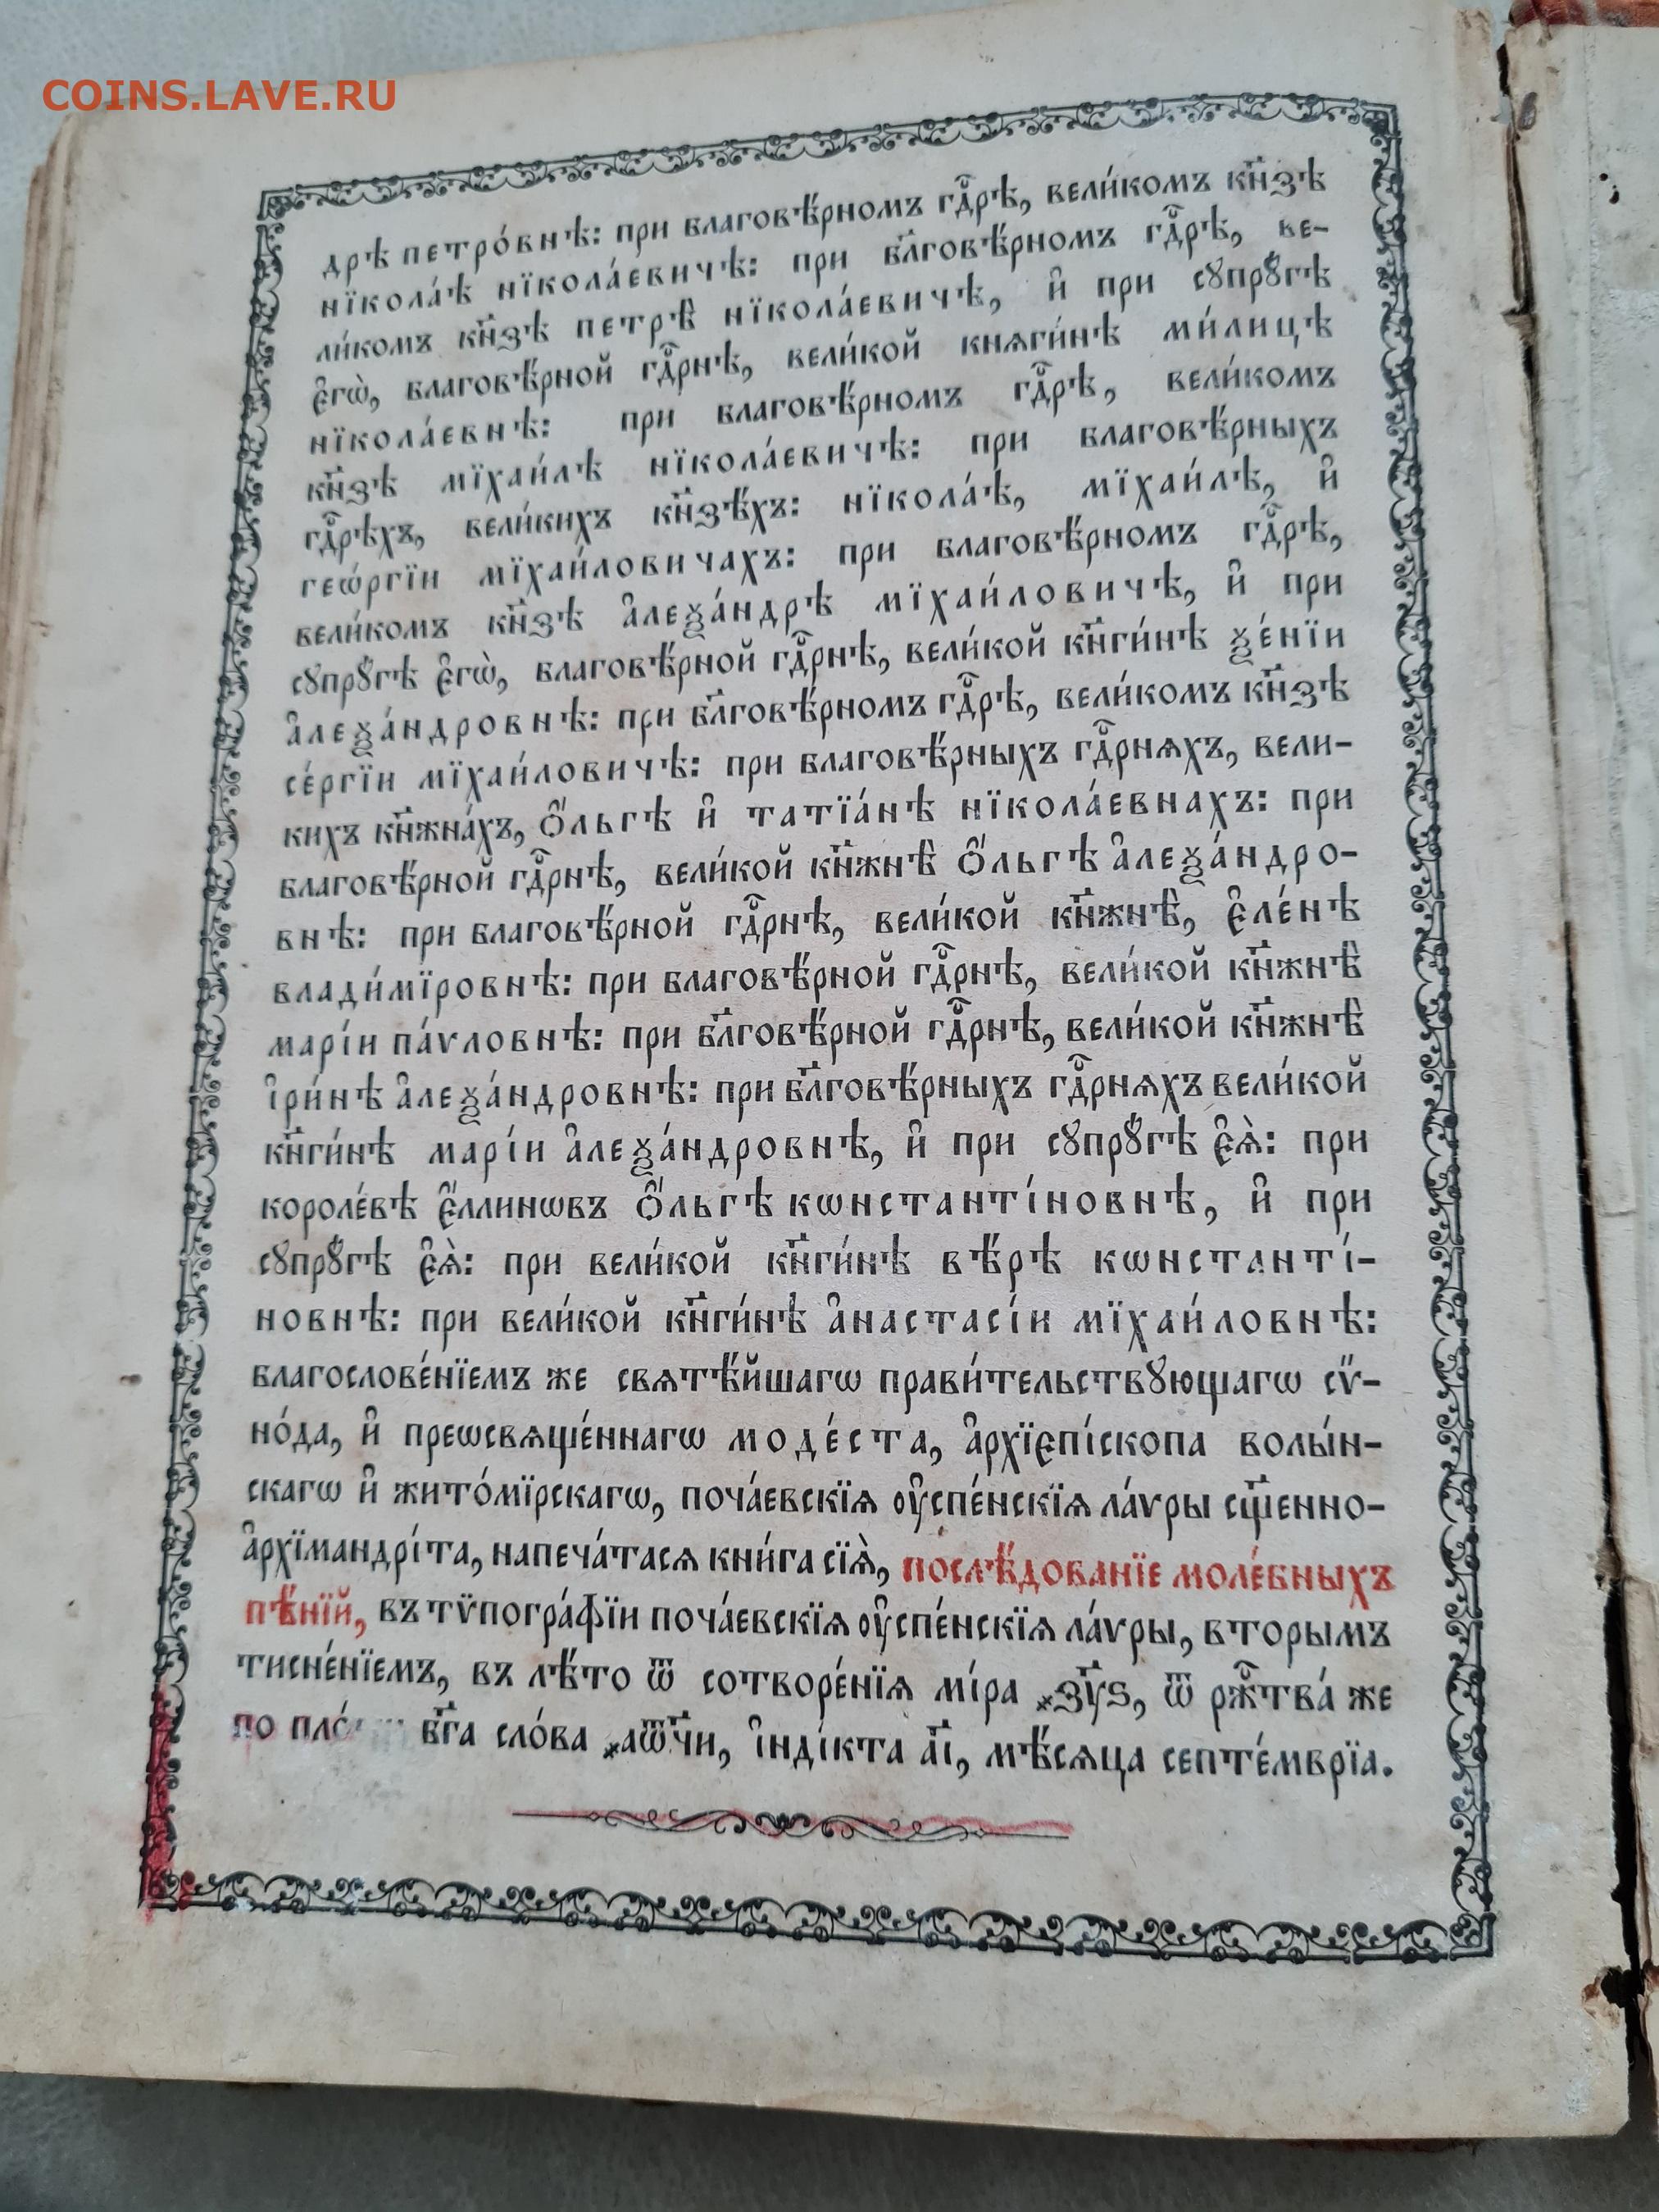 COINS.LAVE.RU
дрѣ петро́внѣ: при благовѣ́рномъ гд҇рѣ, вели́комъ кн҃зѣ
нїкола́ѣ нїкола́евичѣ: при бл҃говѣ́рномъ гд҇рѣ, ве-
ли́комъ кн҃зѣ петрѣ̀ нїкола́евичѣ, и҆ при сꙋпрꙋ́гѣ
є҆гѡ̀, благовѣ́рной гд҇рнѣ, вели́кой княги́нѣ ми́лицѣ
нїкола́евнѣ: при благовѣ́рномъ гд҇рѣ, вели́комъ
кн҃зѣ мїхаи́лѣ нїкола́евичѣ: при благовѣ́рныхъ
гд҇рѣхъ, вели́кихъ кн҃зѣ́хъ: нїкола́ѣ, мїхаи́лѣ, и҆
геѡ́ргїи мїхаи́ловичахъ: при благовѣ́рномъ гд҇рѣ,
вели́комъ кн҃зѣ а҆леѯа́ндрѣ мїхаи́ловичѣ, и҆ при
сꙋпрꙋ́гѣ є҆гѡ̀, благовѣ́рной гд҇рнѣ, вели́кой кн҃ги́нѣ ѯе́нїи
а҆леѯа́ндровнѣ: при бл҃говѣ́рномъ гд҇рѣ, вели́комъ кн҃зѣ
се́ргїи мїхаи́ловичѣ: при благовѣ́рныхъ гд҇рняхъ, вели-
кихъ кн҃жна́хъ, Ѻ҆́льгѣ и҆ татїа́нѣ нїкола́евнахъ: при
благовѣ́рной гд҇рнѣ, вели́кой кн҃жнѣ̀ Ѻ҆́льгѣ а҆леѯа́ндро-
внѣ: при благовѣ́рной гд҇рнѣ, вели́кой кн҃жнѣ̀, є҆ле́нѣ
влади́мїровнѣ: при благовѣ́рной гд҇рнѣ, вели́кой кн҃жнѣ̀
марі́и па́ѵловнѣ: при бл҃говѣ́рной гд҇рнѣ, вели́кой кн҃жнѣ̀
і҆ри́нѣ а҆леѯа́ндровнѣ: при бл҃говѣ́рныхъ гд҇рняхъ вели́кой
кн҃ги́нѣ марі́и а҆леѯа́ндровнѣ, и҆ при сꙋпрꙋ́гѣ є҆ѧ̀: при
короле́вѣ є҆́ллинѡвъ Ѻ҆́льгѣ кѡнстанті́новнѣ, и҆ при
сꙋпрꙋ́гѣ є҆ѧ̀: при вели́кой кн҃ги́нѣ вѣ́рѣ кѡнстанті́-
новнѣ: при вели́кой кн҃ги́нѣ а҆настасі́и мїхаи́ловнѣ:
благослове́нїемъ же святѣ́йшагѡ прави́тельствꙋющагѡ сѵ́-
но́да, и҆ преѡсвяще́ннагѡ моде́ста, а҆рхїєпі́скопа волы́н-
скагѡ и҆ жито́мїрскагѡ, поча́евскїѧ оу҆спе́нскїѧ ла́ѵры сщ҃енно-
а҆рхїмандрі́та, напеча́тасѧ кни́га сїѧ̀, послѣ́дованїе моле́бныхъ
пѣ́нїй, въ тѷпогра́фїи поча́евскїѧ оу҆спе́нскїѧ ла́ѵры, вторымъ
тисне́нїемъ, въ лѣ́то ѿ сотворе́нїѧ мі́ра ҂зу҃ѕ, ѿ рж҇тва́ же
по бг҃а сло́ва ҂аѿ҃чи, і҆нді́кта а҃і, мѣ́сяца септе́мврїа.